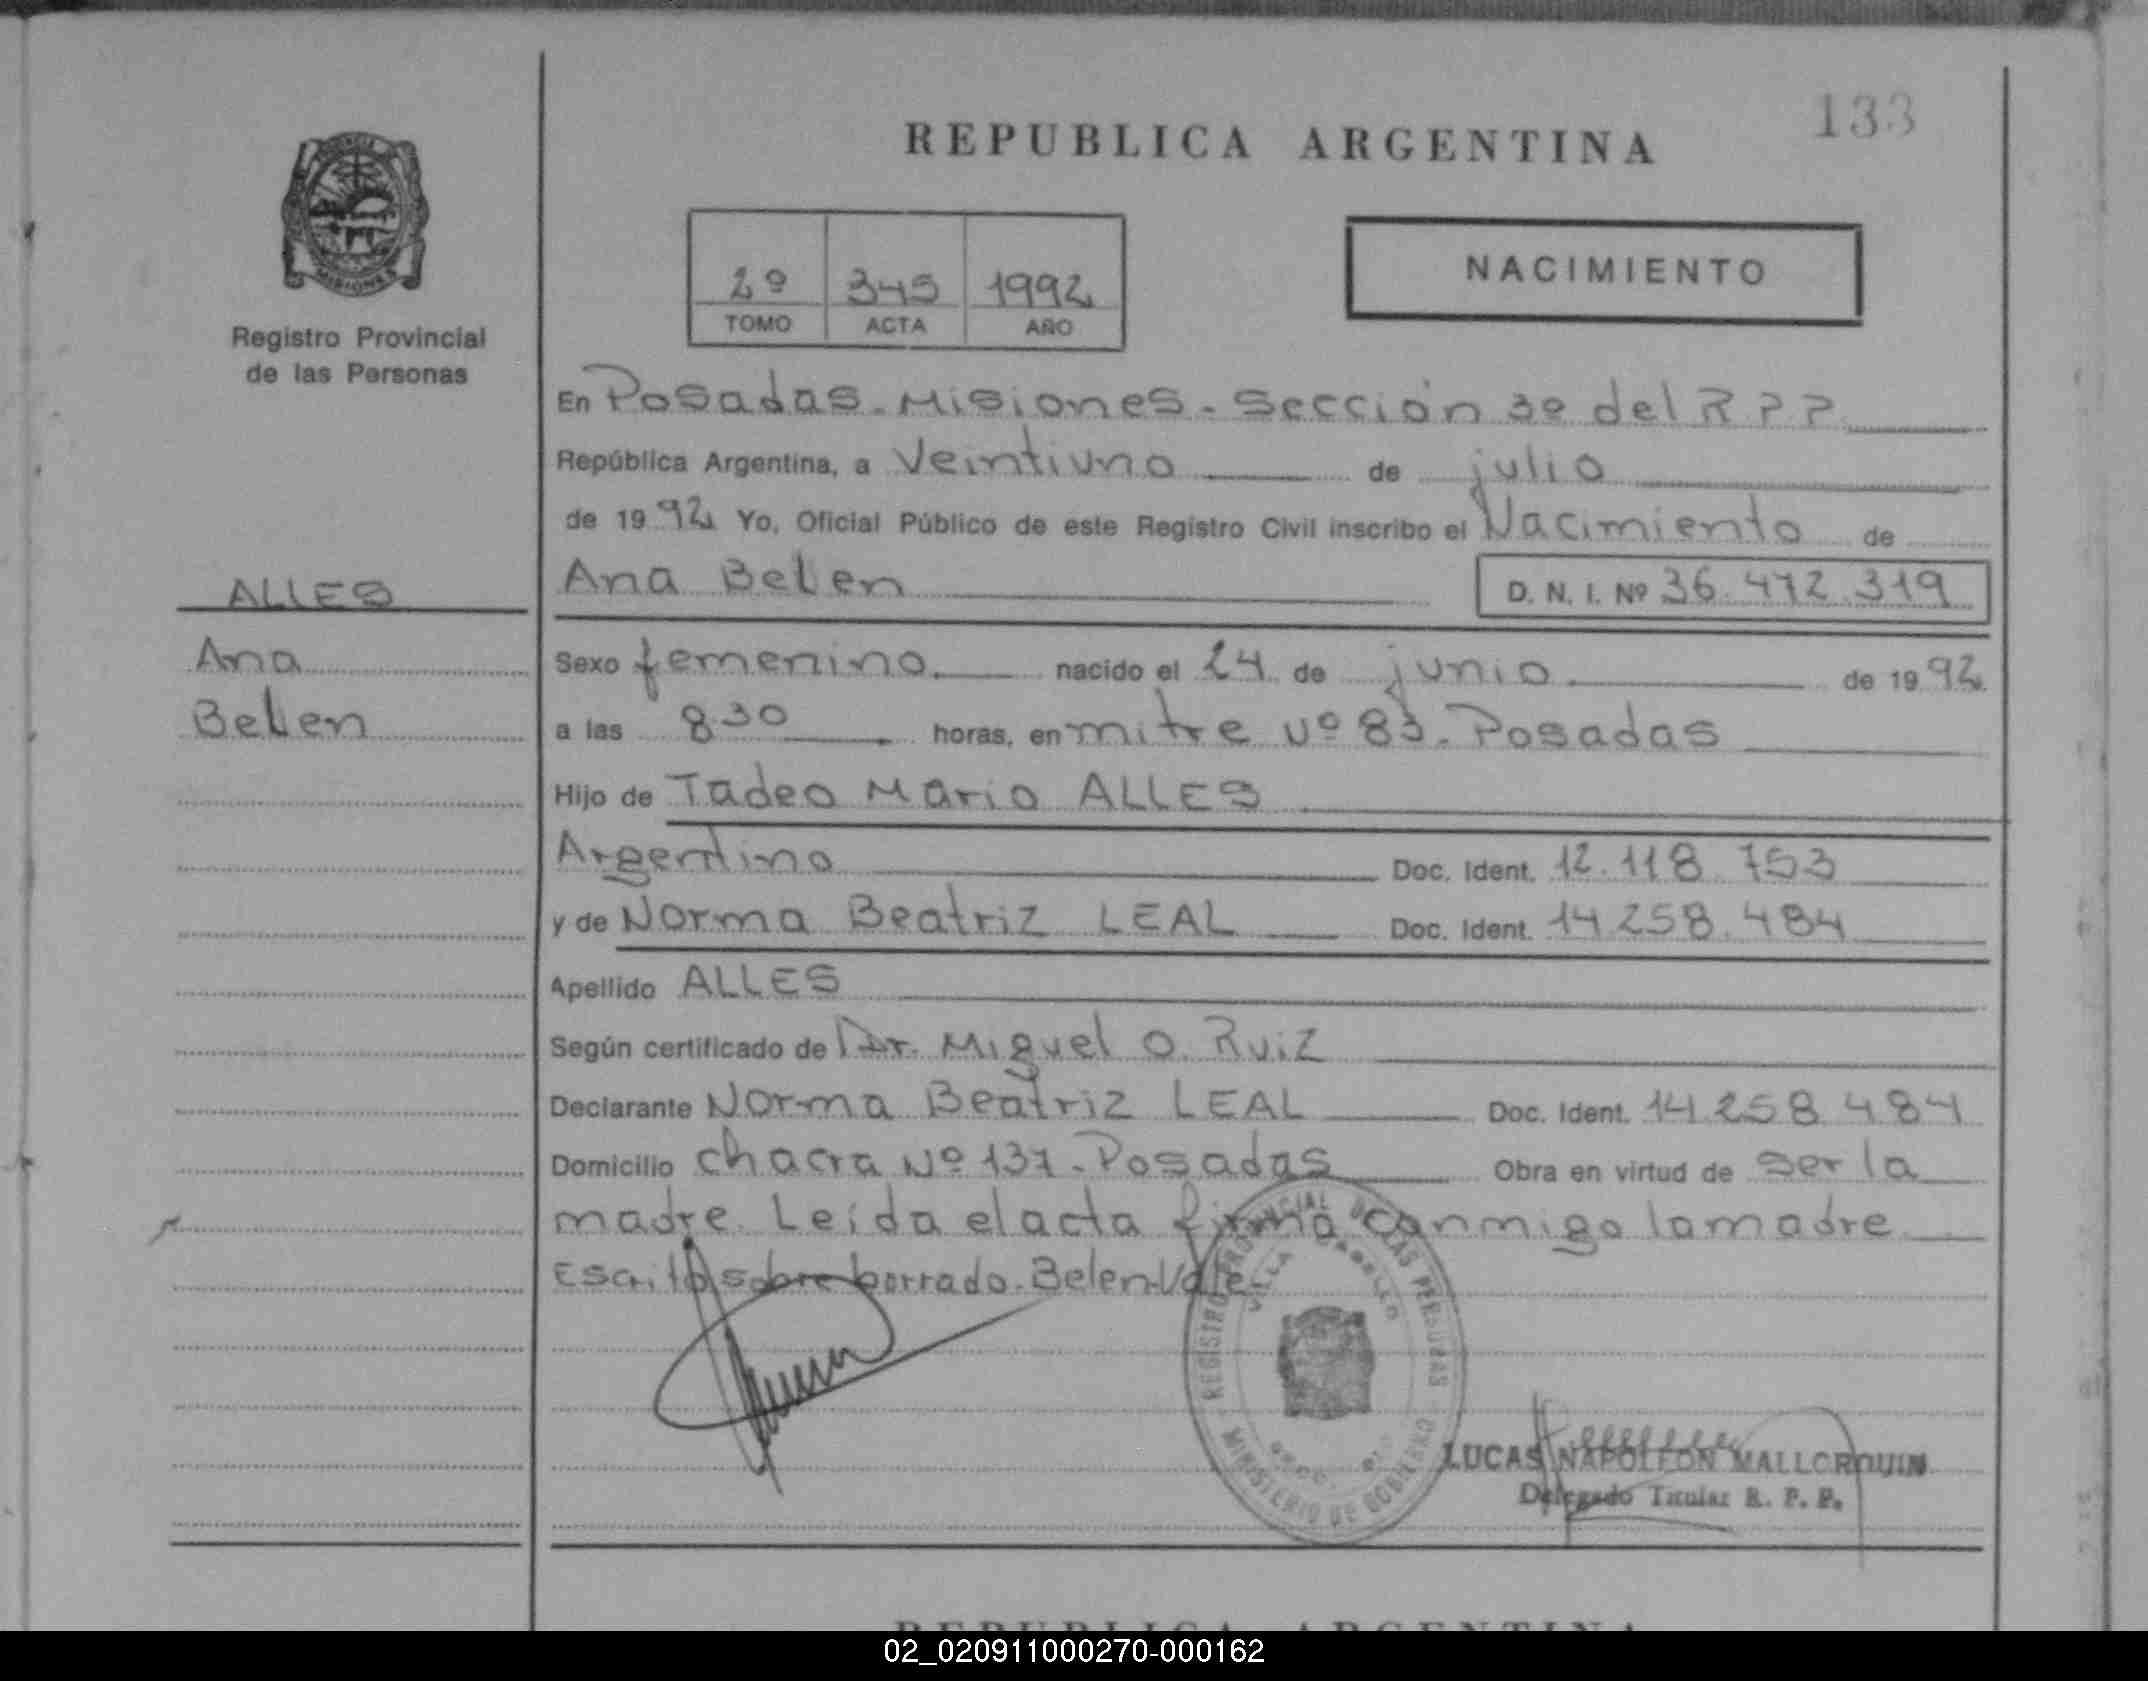 133
REPUBLICA ARGENTINA
MISIONES
Registro Provincial
de las Personas
2º 345 1992
TOMO ACTA AÑO
NACIMIENTO
En Posadas - Misiones - Sección 3º del R P P
República Argentina, a Veintiuno de julio
de 1992 Yo, Oficial Público de este Registro Civil inscribo el Nacimiento de
ALLES
Ana Belen D. N. I. Nº 36.472.319
Ana
Sexo femenino nacido el 24 de junio de 1992
Belen
a las 8.30 horas, en mitre Nº 83 - Posadas
Hijo de Tadeo Mario ALLES
Argentino Doc. Ident. 12.118.753
y de Norma Beatriz LEAL Doc. Ident. 14.258.484
Apellido ALLES
Según certificado de Dr. Miguel O. Ruiz
Declarante Norma Beatriz LEAL Doc. Ident. 14.258.484
Domicilio chacra Nº 137 - Posadas Obra en virtud de ser la
madre. Leída el acta firma conmigo la madre
Escrito sobre borrado. Belen. Vale
REGISTRO PROVINCIAL DE LAS PERSONAS
VILLA CABELLO
MINISTERIO DE GOBIERNO
LUCAS NAPOLEON MALLORQUIN
Delegado Titular R. P. P.
REPUBLICA ARGENTINA
02_020911000270-000162